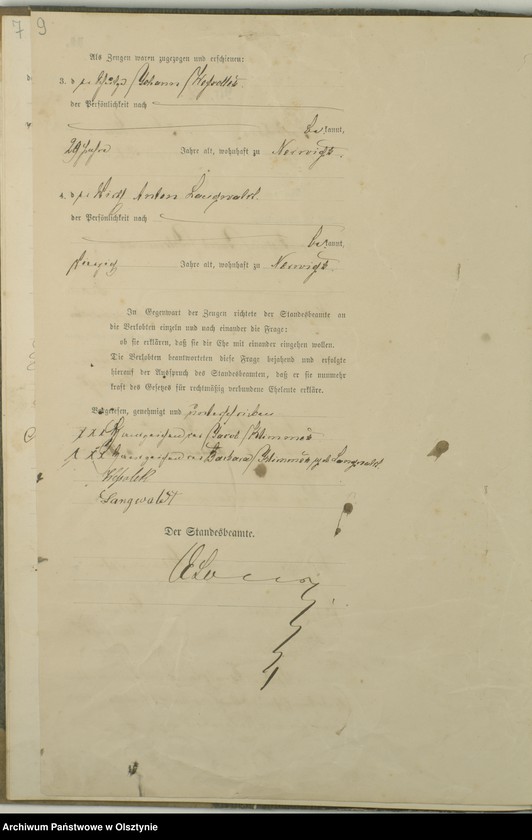 79
Als Zeugen waren zugezogen und erschienen:
3. d er Johann
der Persönlichkeit nach
be kannt,
29 Jahre Jahre alt, wohnhaft zu
4. d er Wirth Anton Langwald
der Persönlichkeit nach
be kannt,
Jahre alt, wohnhaft zu
In Gegenwart der Zeugen richtete der Standesbeamte an
die Verlobten einzeln und nach einander die Frage:
ob sie erklären, daß sie die Ehe mit einander eingehen wollen.
Die Verlobten beantworteten diese Frage bejahend und erfolgte
hierauf der Ausspruch des Standesbeamten, daß er sie nunmehr
kraft des Gesetzes für rechtmäßig verbundene Eheleute erkläre.
Vorgelesen, genehmigt und unterschrieben
xxx Handzeichen des
xxx Handzeichen der Barbara geb Langwald
Langwaldt
Der Standesbeamte.
Archiwum Państwowe w Olsztynie